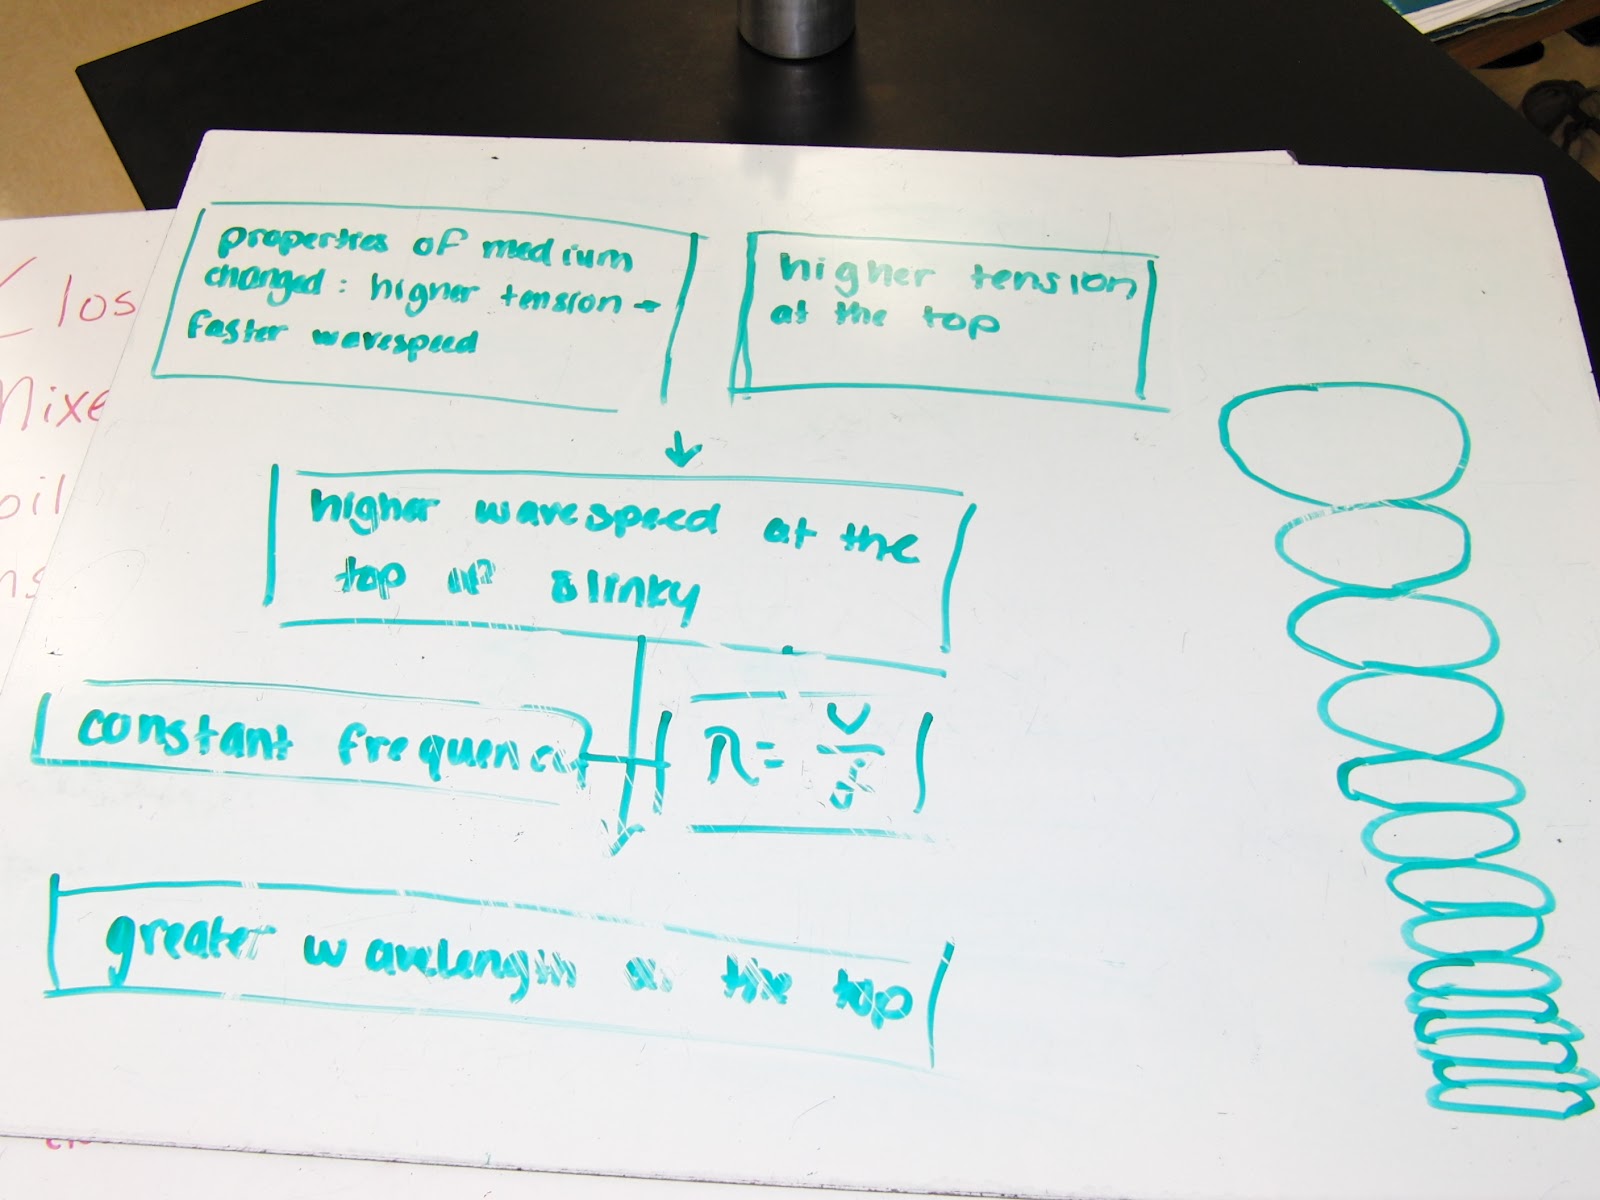 properties of medium
changed: higher tension →
faster wavespeed
higher tension
at the top
higher wavespeed at the
top of slinky
constant frequency
λ = v
greater wavelength at the top